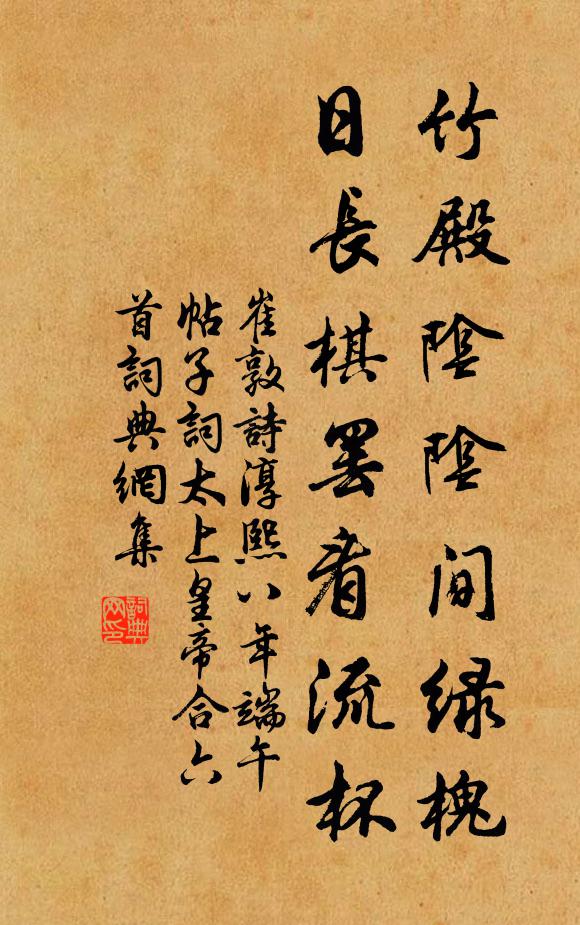 竹殿陰陰間緑槐
日長棋罢看流杯
崔敦詩淳熙八年端午
帖子詞太上皇帝合六
首詞典網集
詞典
网印